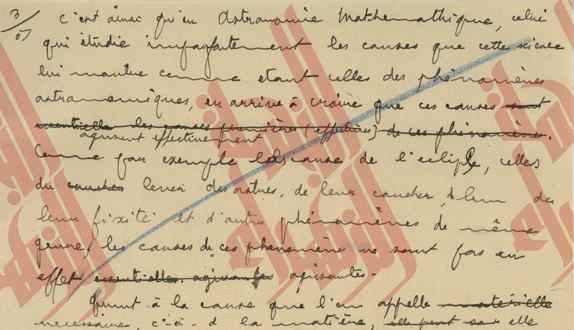 3
C'est ainsi qu'en Astronomie Mathémathique, celui
qui étudie imparfaitement les causes que cette science
lui montre comme étant celles des phénomènes
astronomiques, en arrive à croire que ces causes sont
essentielle les causes premières (effectives) de ces phénomènes.
agissent effectivement
Comme par exemple les causes de l'eclipse, celles
du coucher lever des astres, de leur coucher, de leur
leur fixité et d'autres phénomènes de même
genre, les causes de ces phénomènes ne sont pas en
effet essentielles agissantes.
Quant à la cause que l'on appelle matérielle
nécessaires, c'-à-d la matière, elle